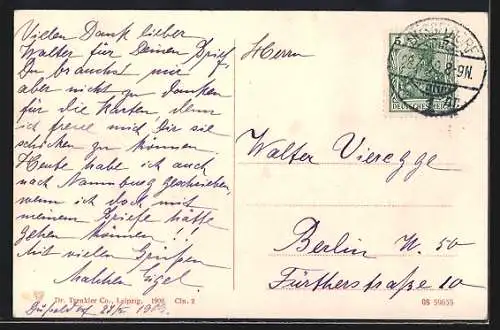 Vielen Dank lieber
Walter für Deinen Brief.
Du brauchst mir
aber nicht zu danken
für die Karten denn
ich freue mich, Dir sie
schicken zu können
Heute habe ich auch
nach Naumburg geschrieben,
wenn ich doch mit
meinem Briefe hätte
gehen können!!
Mit vielen Grüßen
Malchen
Dr. Trenkler Co., Leipzig. 1906 Cln. 2
Düsseldorf
Herrn
Walter Vieregge
Berlin W. 50
Fürtherstraße 10
DEUTSCHES REICH
8-9N.
08 59655